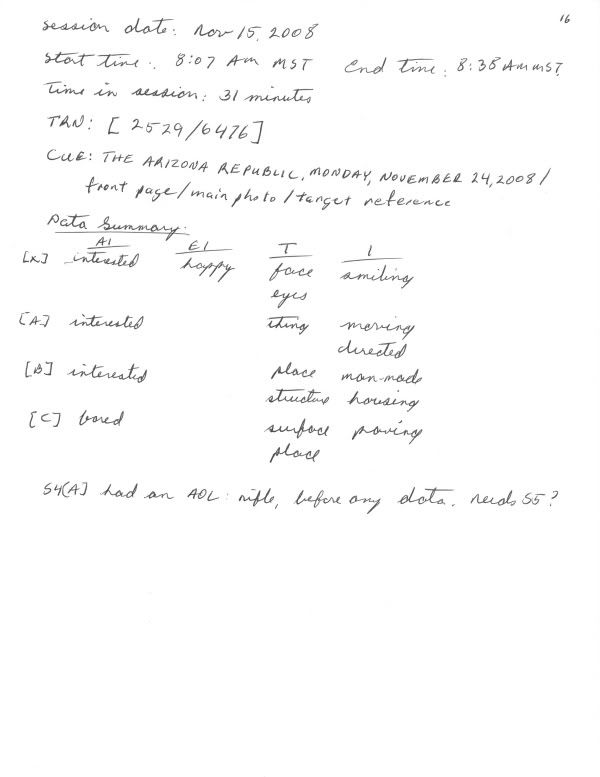 16
session date: Nov 15, 2008
start time: 8:07 AM MST End time: 8:38 AM MST.
Time in session: 31 minutes
TRN: [2529/6476]
CUE: THE ARIZONA REPUBLIC, MONDAY, NOVEMBER 24, 2008/
front page/main photo/target reference
Data Summary:
AI EI T I
[X] interested happy face smiling
eyes
[A] interested thing moving
directed
[B] interested place man-made
structure housing
[C] bored surface paving
place
S4[A] had an AOL: rifle, before any data. needs S5?